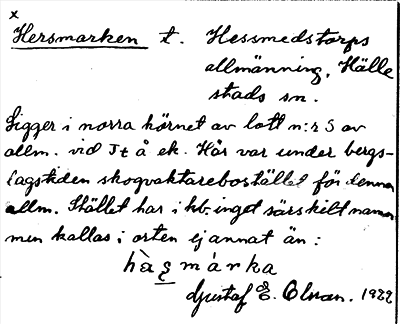 x
Hersmarken t. Hessmedstorps
allmänning, Hälle
stads sn.
Ligger i norra hörnet av lott n:r 5 av
allm. vid It å ek. Här var under bergs-
lagstiden skogvaktarebostället för denna
allm. Stället har i kb. inget särskilt namn
men kallas i orten ej annat än:
hàs̨márka
Gustaf E. Olsson. 1929